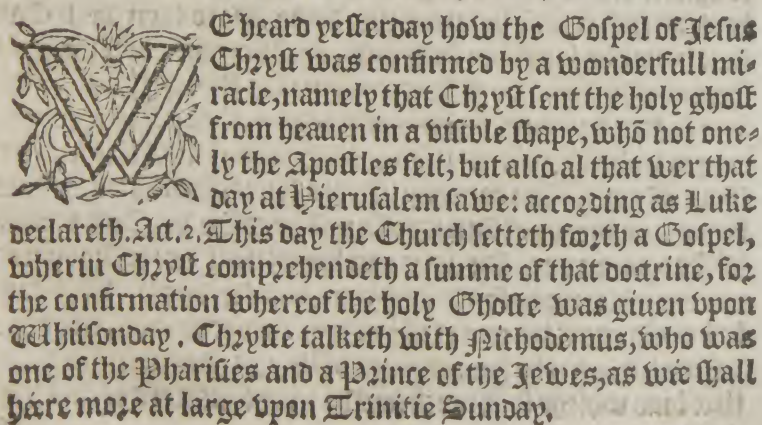 WE heard yesterday how the Gospel of Jesus
Chryst was confirmed by a woonderfull mi-
racle, namely that Chryst sent the holy ghost
from heauen in a visible shape, whõ not one-
ly the Apostles felt, but also al that wer that
day at Hierusalem sawe: according as Luke
declareth. Act.2. This day the Church setteth foorth a Gospel,
wherin Chryst comprehendeth a summe of that doctrine, for
the confirmation whereof the holy Ghoste was giuen vpon
Whitsonday. Chryste talketh with Nichodemus, who was
one of the Pharisies and a Prince of the Jewes, as wée shall
héere more at large vpon Trinitie Sunday.